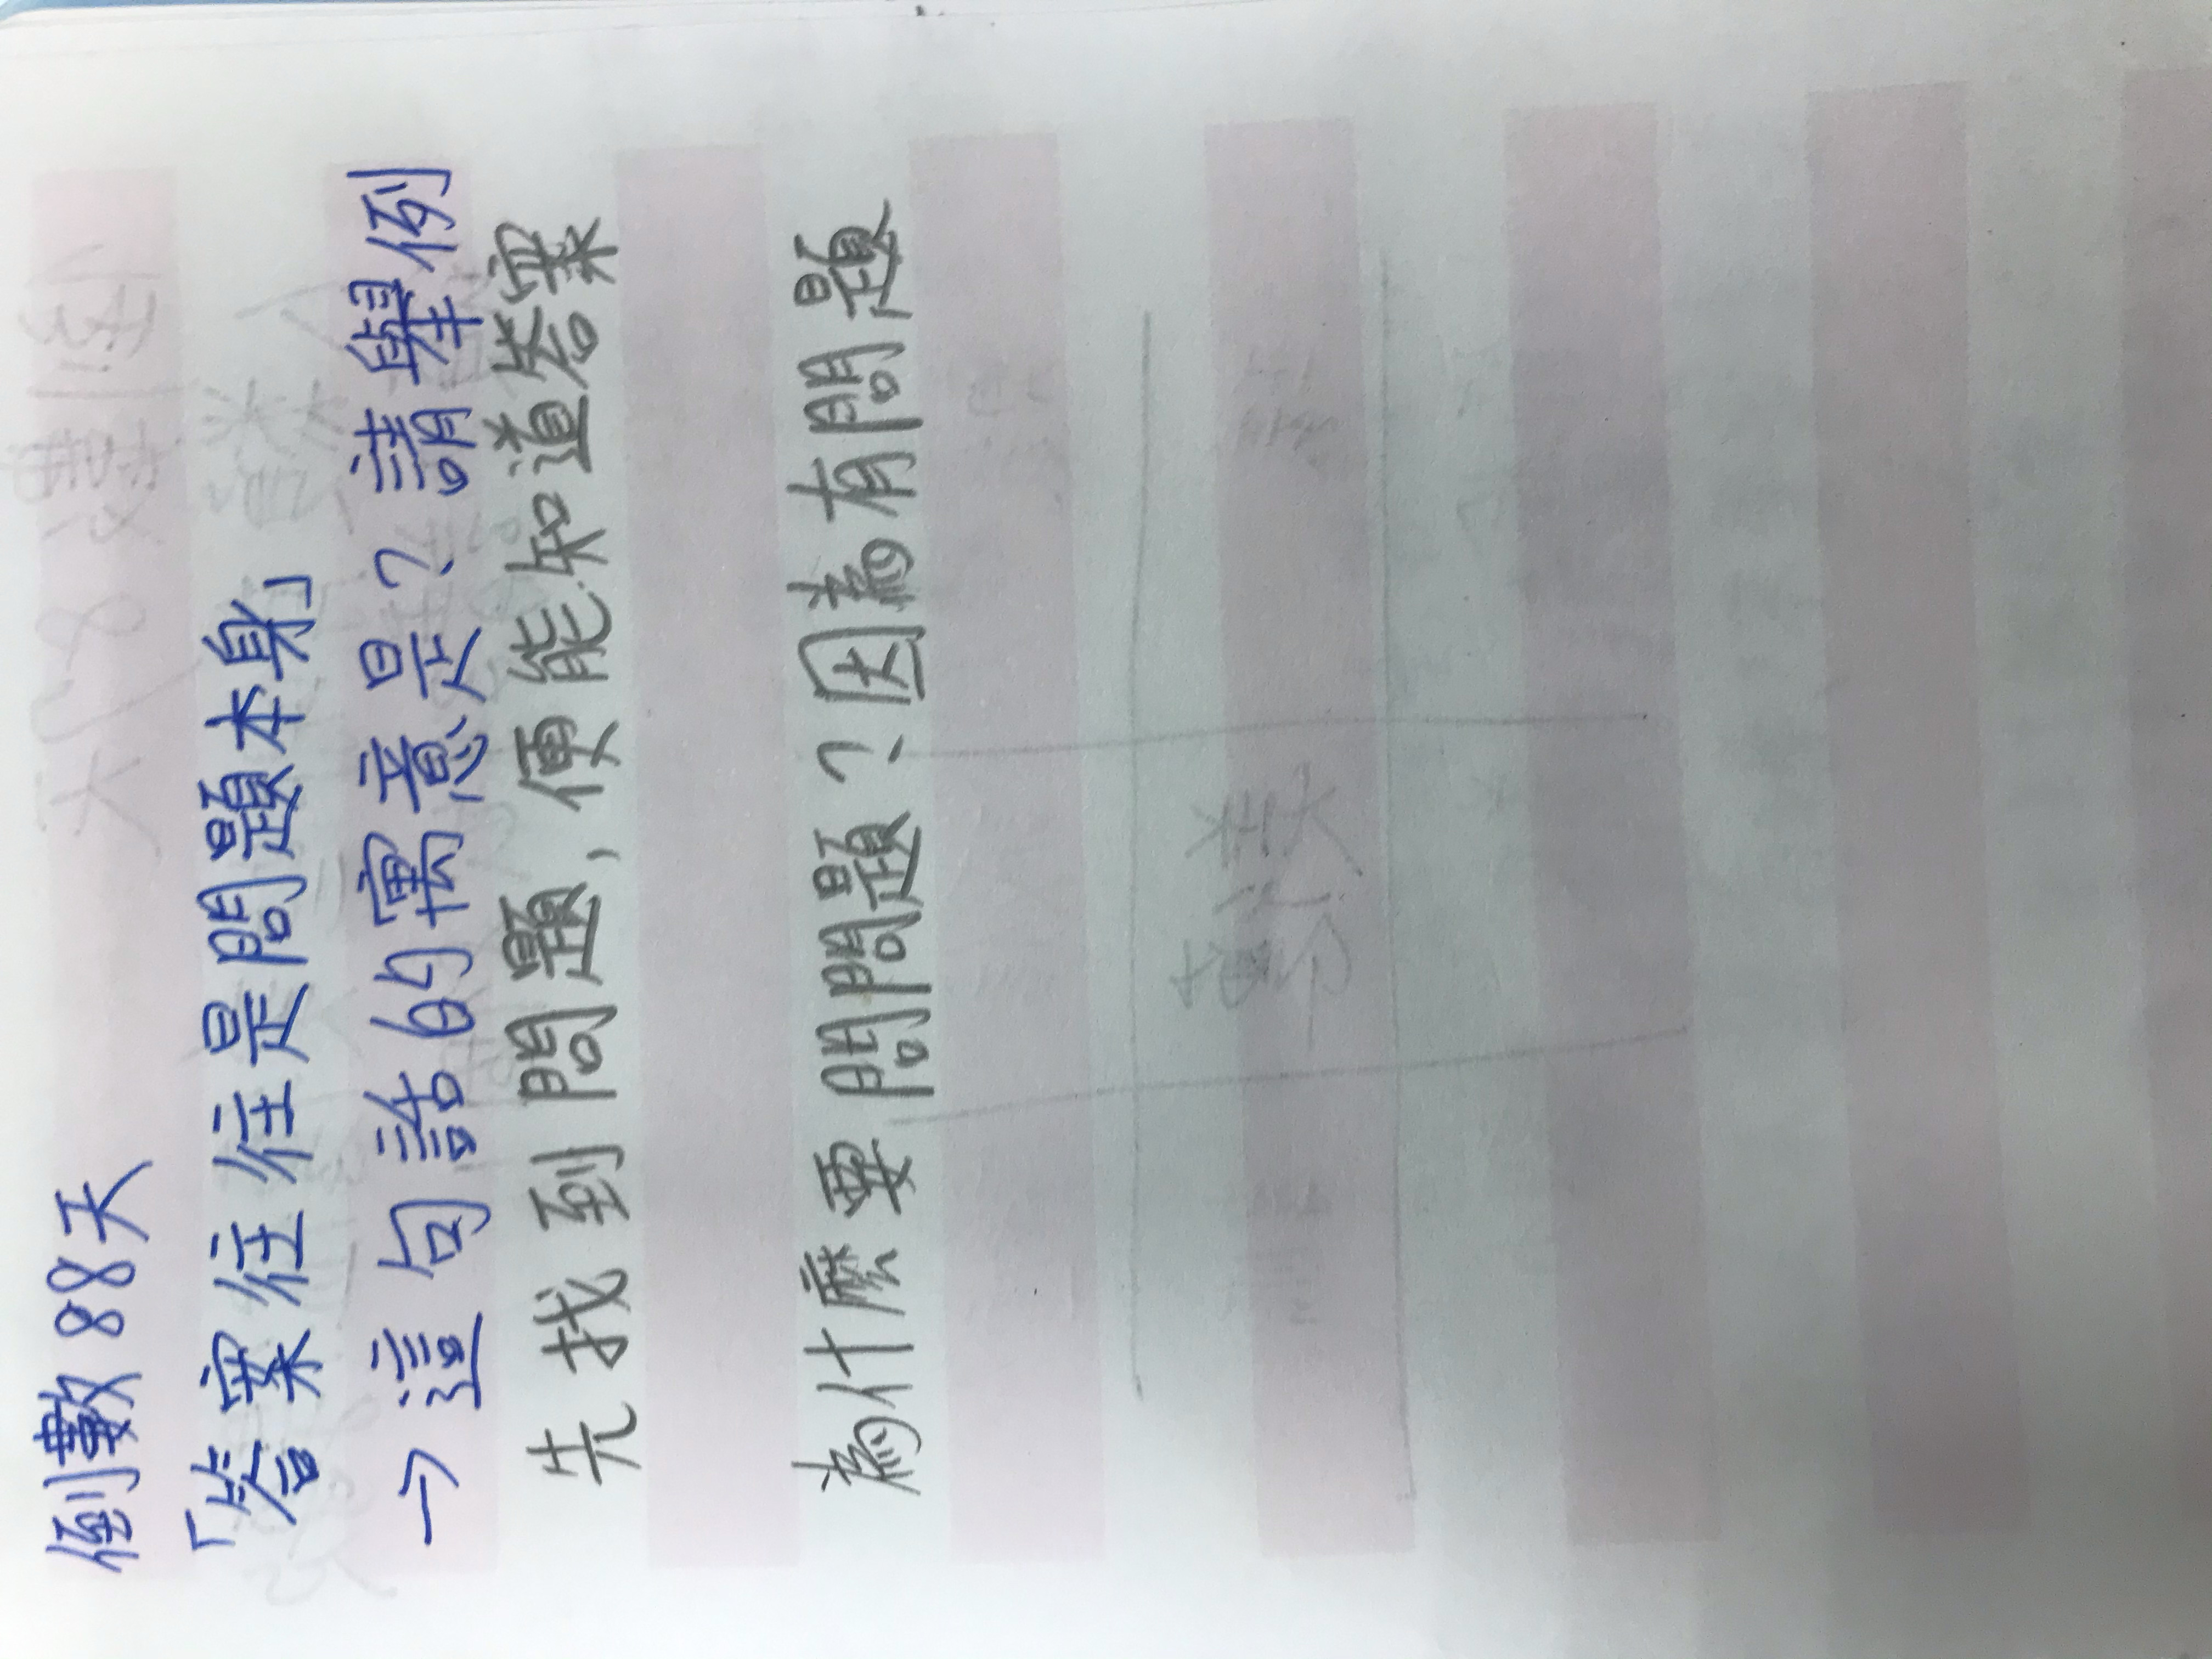 倒數88天
「答案往往是問題本身」
→這句話的寓意是？請舉例
先找到問題，便能知道答案
為什麼要問問題？因為有問題